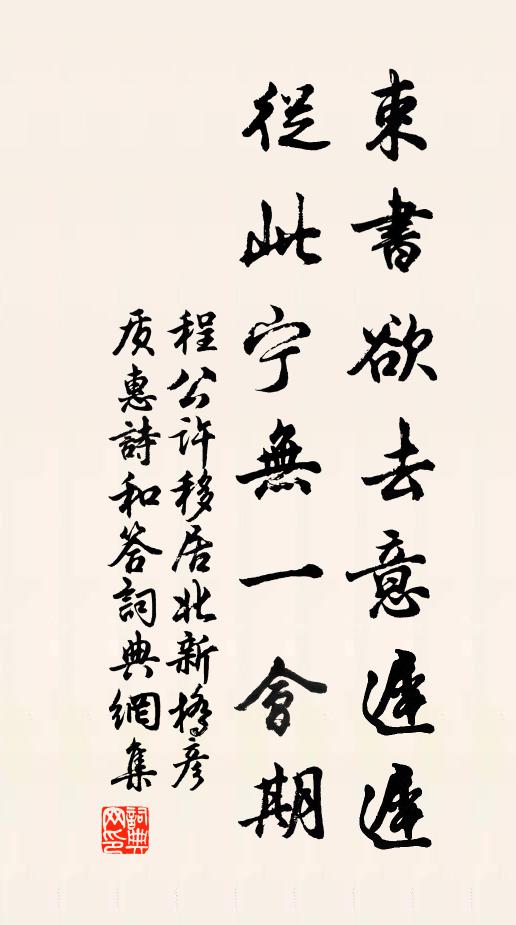 束書欲去意遲遲
從此宁無一會期
程公许移居北新橋彦
质惠詩和答詞典網集
詞典网印